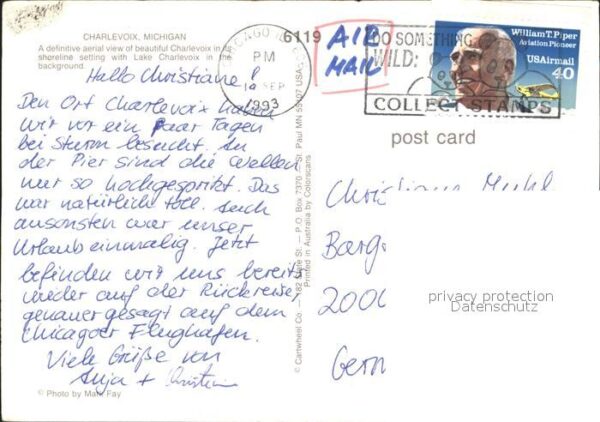 CHARLEVOIX, MICHIGAN
A definitive aerial view of beautiful Charlevoix in its
shoreline setting with Lake Charlevoix in the
background.
Hallo Christiane!
Den Ort Charlevoix haben
wir vor ein paar Tagen
bei Sturm besucht. An
der Pier sind die Wellen
nur so hochgespritzt. Das
war natürlich toll. Auch
ansonsten war unser
Urlaub einmalig. Jetzt
befinden wir uns bereits
wieder auf der Rückreise,
genauer gesagt auf dem
Chicagoer Flughafen.
Viele Grüße von
Anja + Christian
© Photo by Mark Fay
6119
St. Paul MN 55107 USA
© Cartwheel Co. State St. — P.O. Box 7370
Printed in Australia by Colorscans
CHICAGO
PM
SEP
1993
AIR
MAIL
DO SOMETHING
WILD:
COLLECT STAMPS
William T. Piper
Aviation Pioneer
USAirmail
40
post card
Barg
Germ
privacy protection
Datenschutz